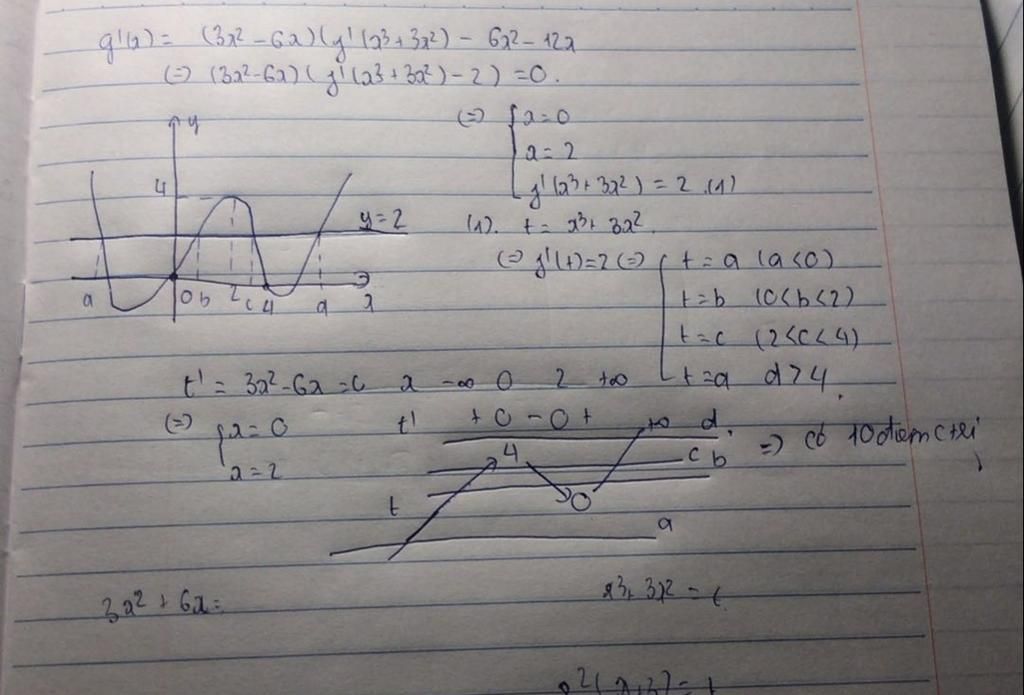 g'(x) = (3x² - 6x)(f'(x³ + 3x²) - 6x² - 12x
(=) (3x² - 6x)(f'(x³ + 3x²) - 2) = 0.
(=) x = 0
x = 2
f'(x³ + 3x²) = 2 (1)
y
4
y = 2
a 0 b 2 c 4 d x
(1). t = x³ + 3x²
(=) f'(t) = 2 (=) t = a (a < 0)
t = b (0 < b < 2)
t = c (2 < c < 4)
t = d d > 4.
t' = 3x² - 6x = 0
(=) x = 0
x = 2
x -∞ 0 2 +∞
t' + 0 - 0 +
+∞ d
4
c b
t
0
a
=) có 10 điểm ctrị
3x² + 6x =
x³ + 3x² = t